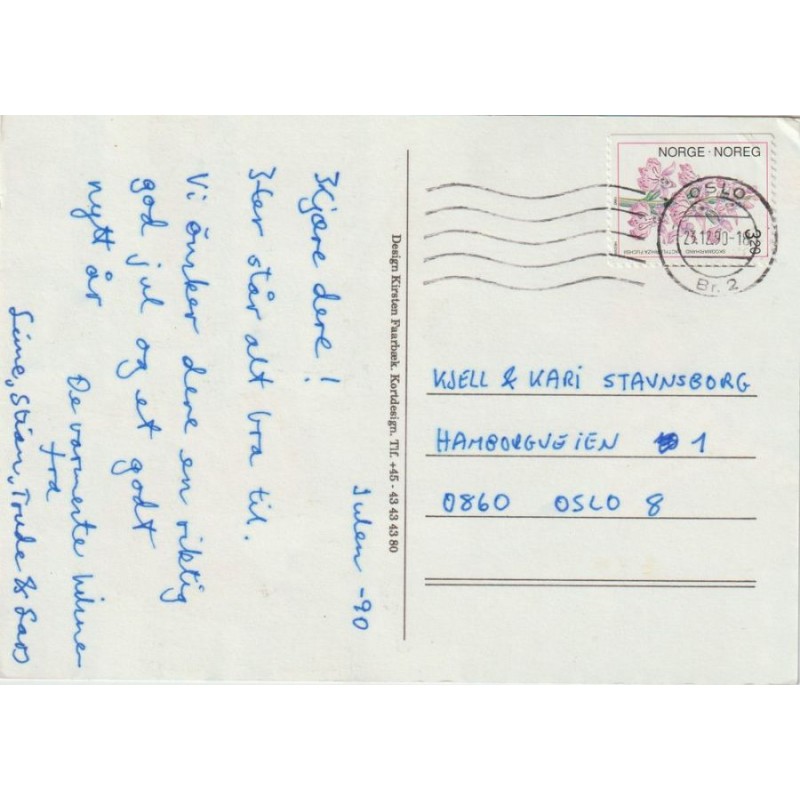 Julen -90
Kjære dere!
Her står alt bra til.
Vi önsker dere en riktig
god jul og et godt
nytt år
De varmeste hilsner
fra
Stian, Trude & Lars
Design Kirsten Faarbæk. Kortdesign. Tlf. +45 - 43 43 43 80
NORGE · NOREG
3.20
OSLO
23.12.90-18
Br. 2
KJELL & KARI STAVNSBORG
HAMBORGVEIEN 1
0860 OSLO 8